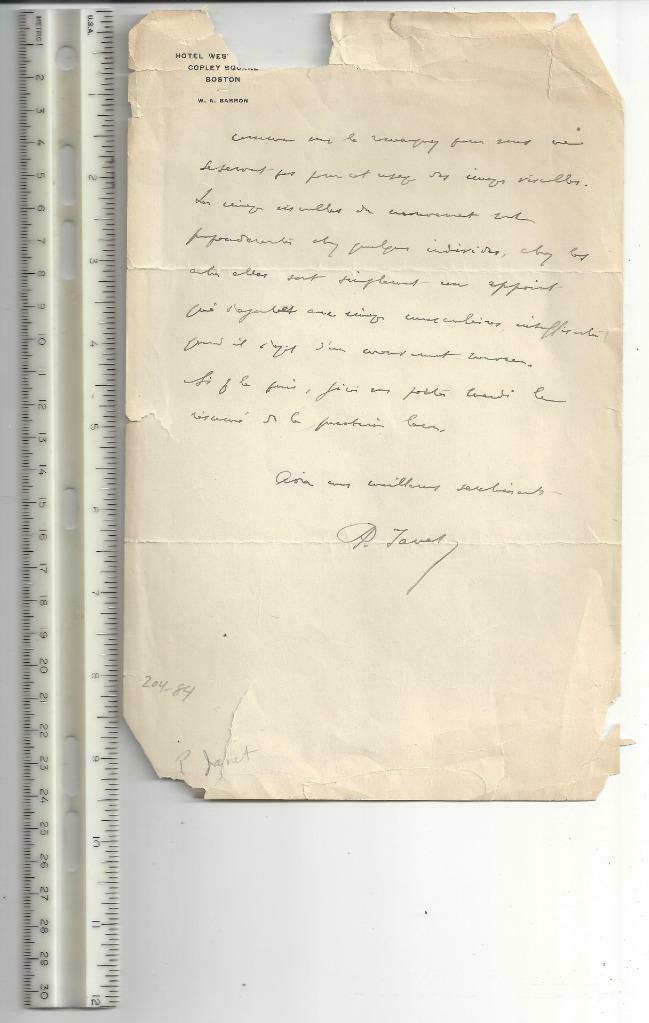 HOTEL WES
COPLEY SQUARE
BOSTON
W. A. BARRON
comme vous le remarquez pour nous
se servent pas pour cet usage des images visuelles.
Les images visuelles du mouvement sont
prépondérantes chez quelques individus, chez les
autres elles sont simplement un appoint
qui s'ajoutent aux images musculaires insuffisantes
quand il s'agit d'un mouvement nouveau.
Si je le puis, j'irai vous porter mardi le
résumé de la prochaine leçon.
meilleurs sentiments
P. Janet
204-84
P Janet
METRIC
1
2
3
4
5
6
7
8
9
10
11
12
13
14
15
16
17
18
19
20
21
22
23
24
25
26
27
28
29
30
U.S.A.
2
3
4
5
6
7
8
9
10
11
12